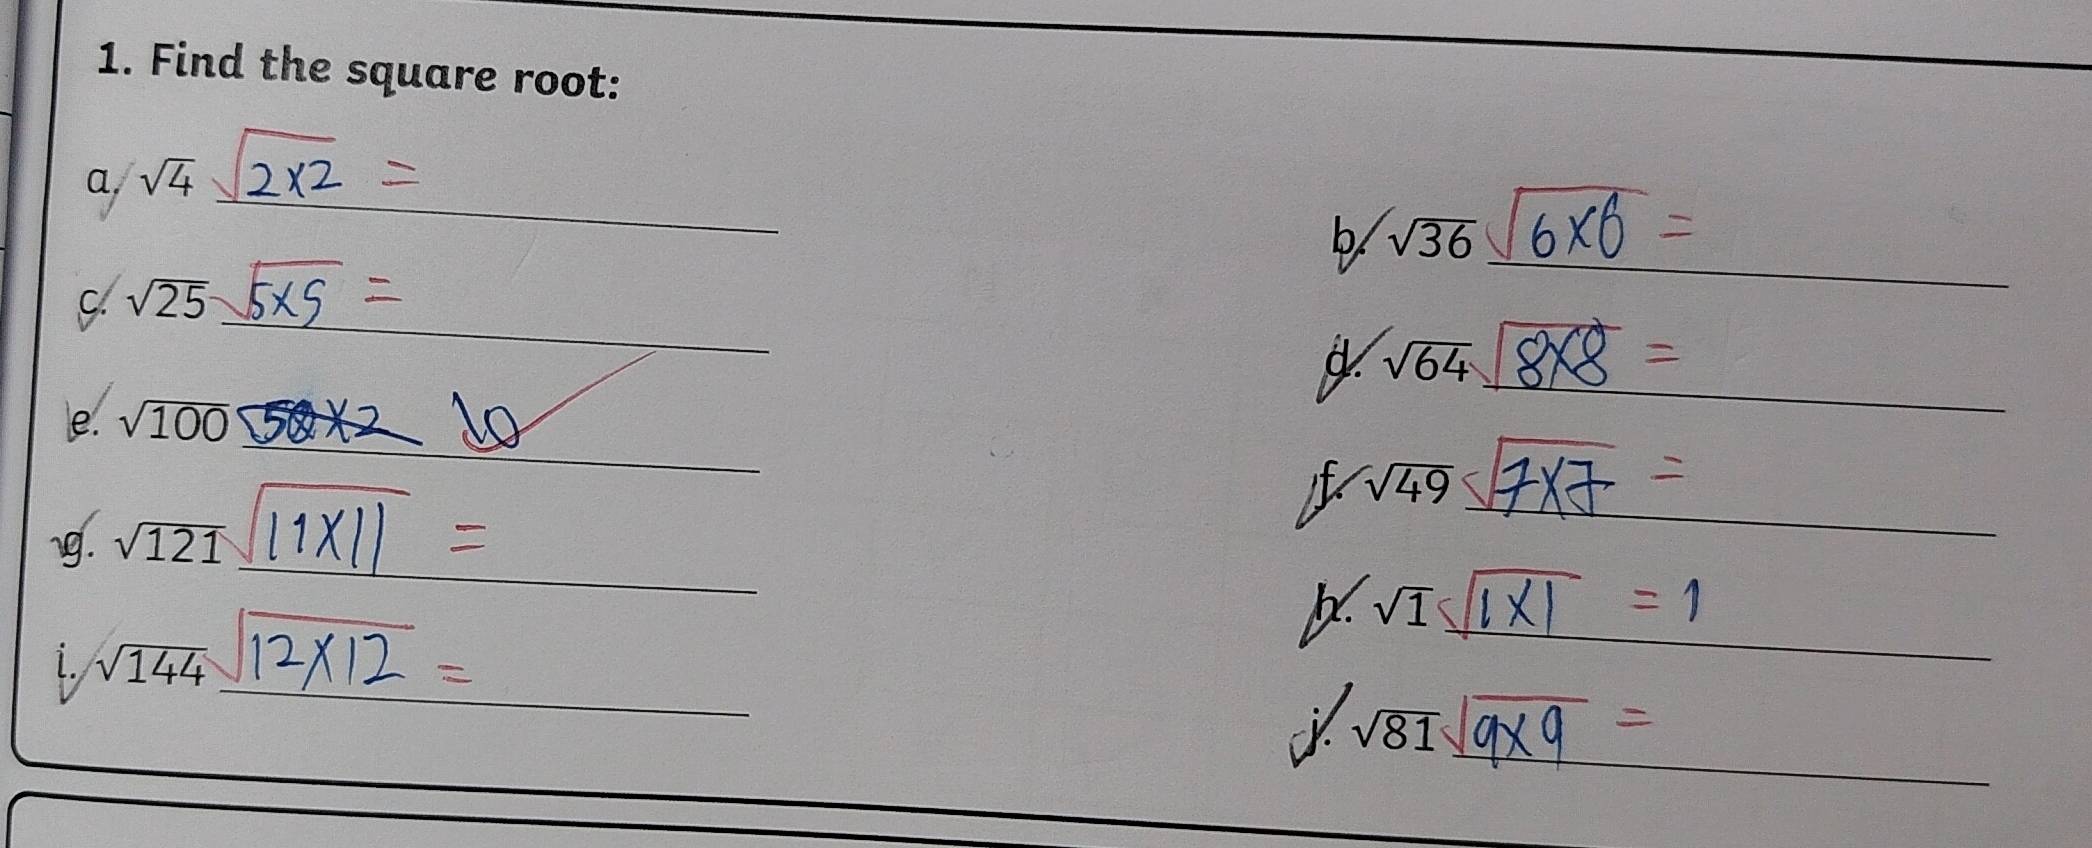 1. Find the square root:
a. √4 √2×2 =
b. √36 √6×6 =
c. √25 √5×5 =
d. √64 √8×8 =
e. √100 50×2 10
f. √49 √7×7 =
g. √121 √11×11 =
h. √1 √1×1 = 1
i. √144 √12×12 =
j. √81 √9×9 =